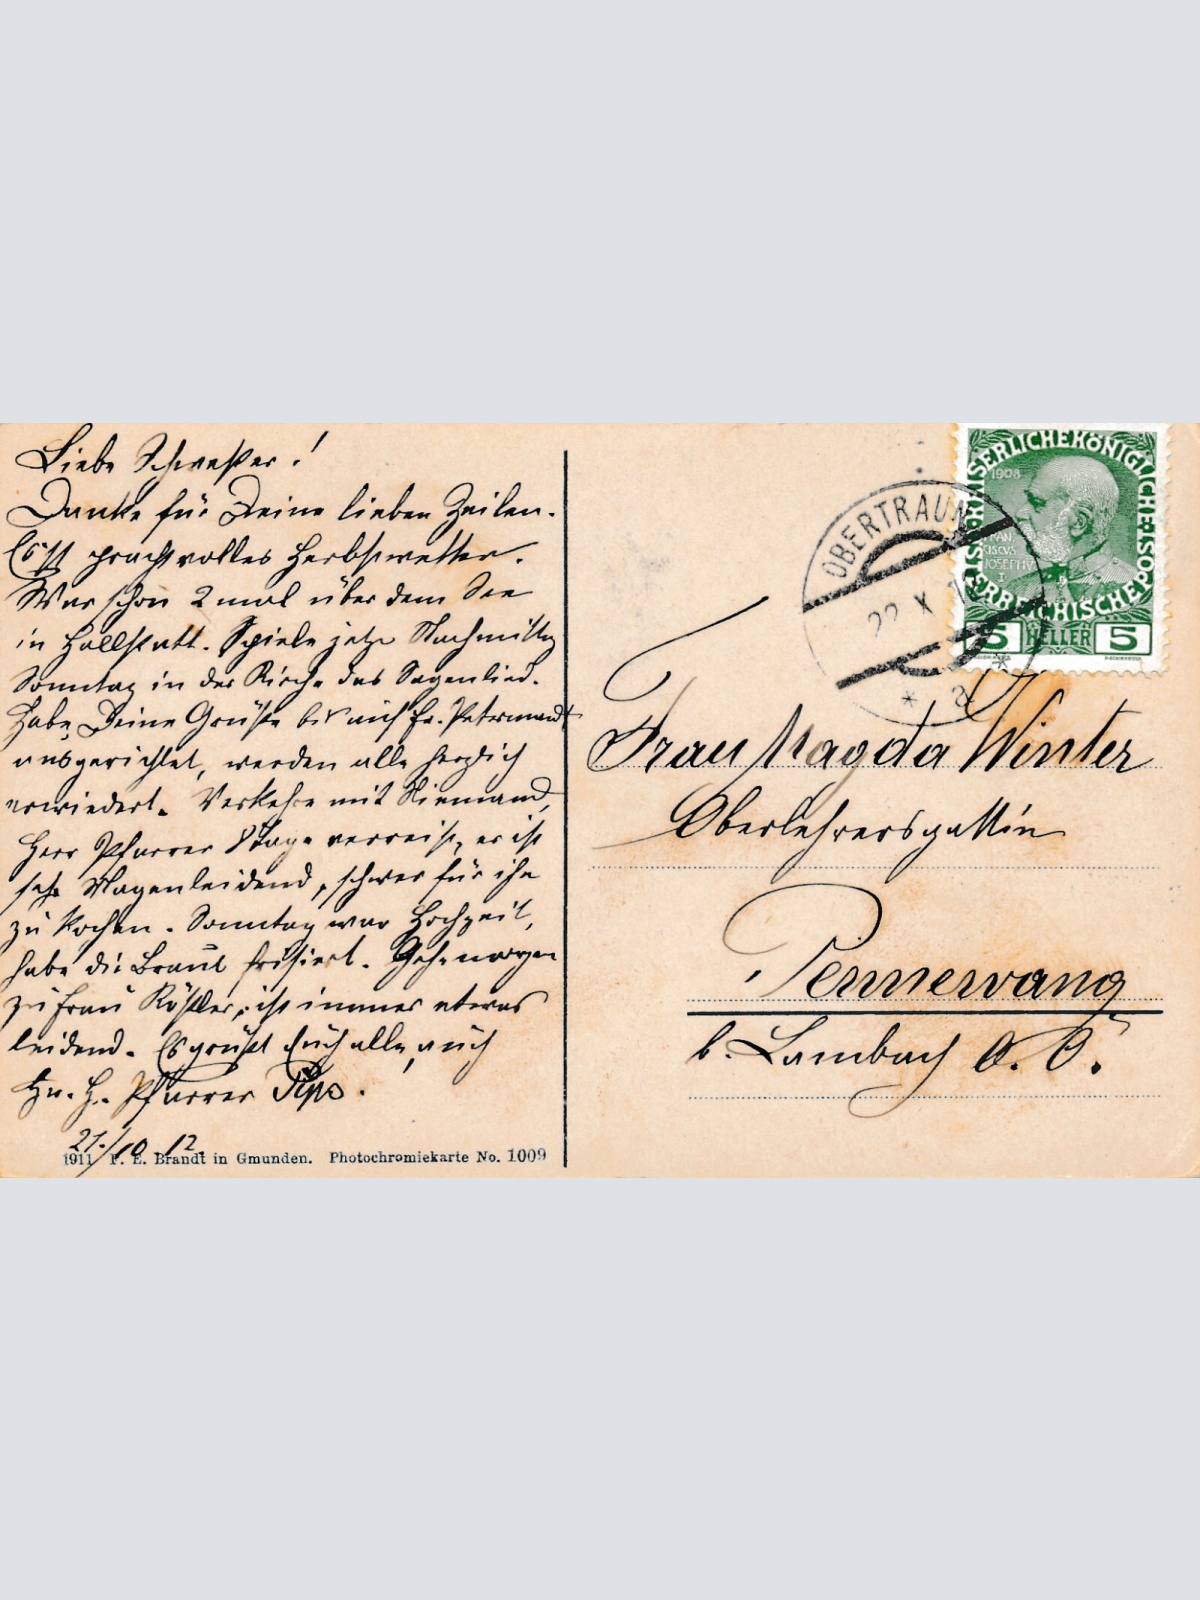 Liebe Schwester!
Danke für Deine lieben Zeilen.
Es ist prachtvolles Herbstwetter.
War schon 2 mal über dem See
in Hallstatt. Spiele jetzt Nachmittag
Sonntag in der Kirche das Segenlied.
Habe Deine Grüße bis auf Fr. Petermandl
ausgerichtet, werden alle herzlich
erwiedert. Verkehre mit Niemand,
Herr Pfarrer 8 Tage verreist, er ist
sehr Magenleidend, schwer für ihn
zu kochen. Sonntag war Hochzeit,
habe die Braut frisiert. Gehe morgen
zu Frau Rößler, ist immer etwas
leidend. Es grüßt Euch alle, auch
Hn. H. Pfarrer
21./10 12.
1911 F. E. Brandt in Gmunden. Photochromiekarte No. 1009
OBERTRAUN
22 X
* a *
KAISERLICHE KÖNIGLICHE ÖSTERREICHISCHE POST
1908
5 HELLER 5
Frau Magda Winter
Oberlehrersgattin
Pennewang
b. Lambach O. Ö.